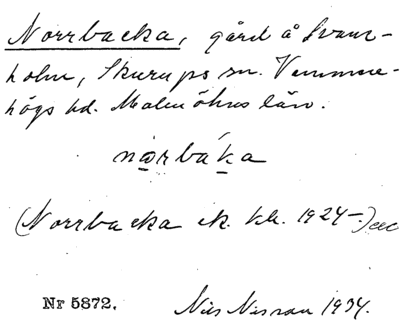 Norrbacka, gård å Svane-
holm, Skurups sn. Vemmen-
högs hd. Malmöhus län.
nɑrbáka
(Norrbacka ek. kk. 1924-.)
Nr 5872. Nils Nilsson 1934.